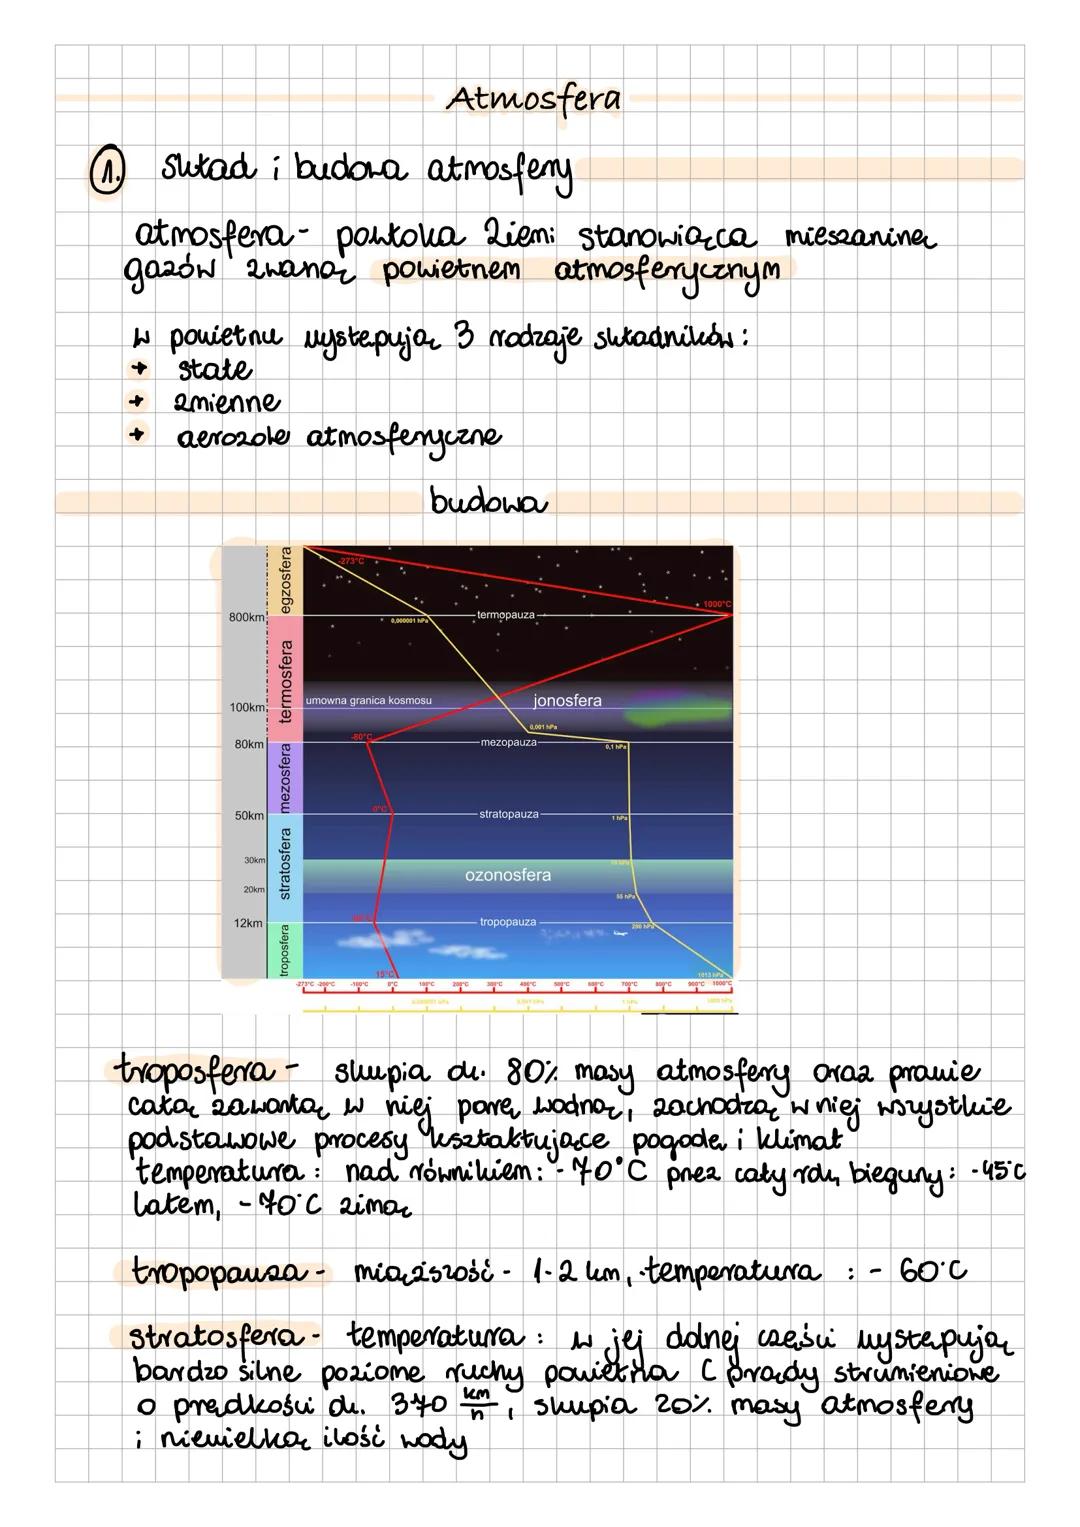 Atmosfera
1. skład i budowa atmosfery
atmosfera - powłoka Ziemi stanowiąca mieszaninę
gazów zwaną powietrzem atmosferycznym
w powietrzu występują 3 rodzaje składników:
→ stałe
→ zmienne
→ aerozole atmosferyczne
budowa
egzosfera
-273°C
1000°C
800km
termopauza
0,000001 hPa
termosfera
umowna granica kosmosu
jonosfera
100km
0,001 hPa
-80°C
80km
mezopauza
0,1 hPa
mezosfera
0°C
50km
stratopauza
1 hPa
stratosfera
30km
ozonosfera
20km
55 hPa
12km
tropopauza
troposfera
15°C
1013 hPa
-273°C -200°C -100°C 0°C 100°C 200°C 300°C 400°C 500°C 600°C 700°C 800°C 900°C 1000°C
0,000001 hPa 0,001 hPa 1 hPa 1000 hPa
troposfera - skupia ok. 80% masy atmosfery oraz prawie
całą zawartą w niej parę wodną, zachodzą w niej wszystkie
podstawowe procesy kształtujące pogodę i klimat
temperatura: nad równikiem: -70°C przez cały rok, bieguny: -45°C
latem, -70°C zimą
tropopauza - miąższość - 1-2 km, temperatura : - 60°C
stratosfera - temperatura : w jej dolnej części występują
bardzo silne poziome ruchy powietrza ( prądy strumieniowe
o prędkości ok. 370 km/h, skupia 20% masy atmosfery
i niewielką ilość wody